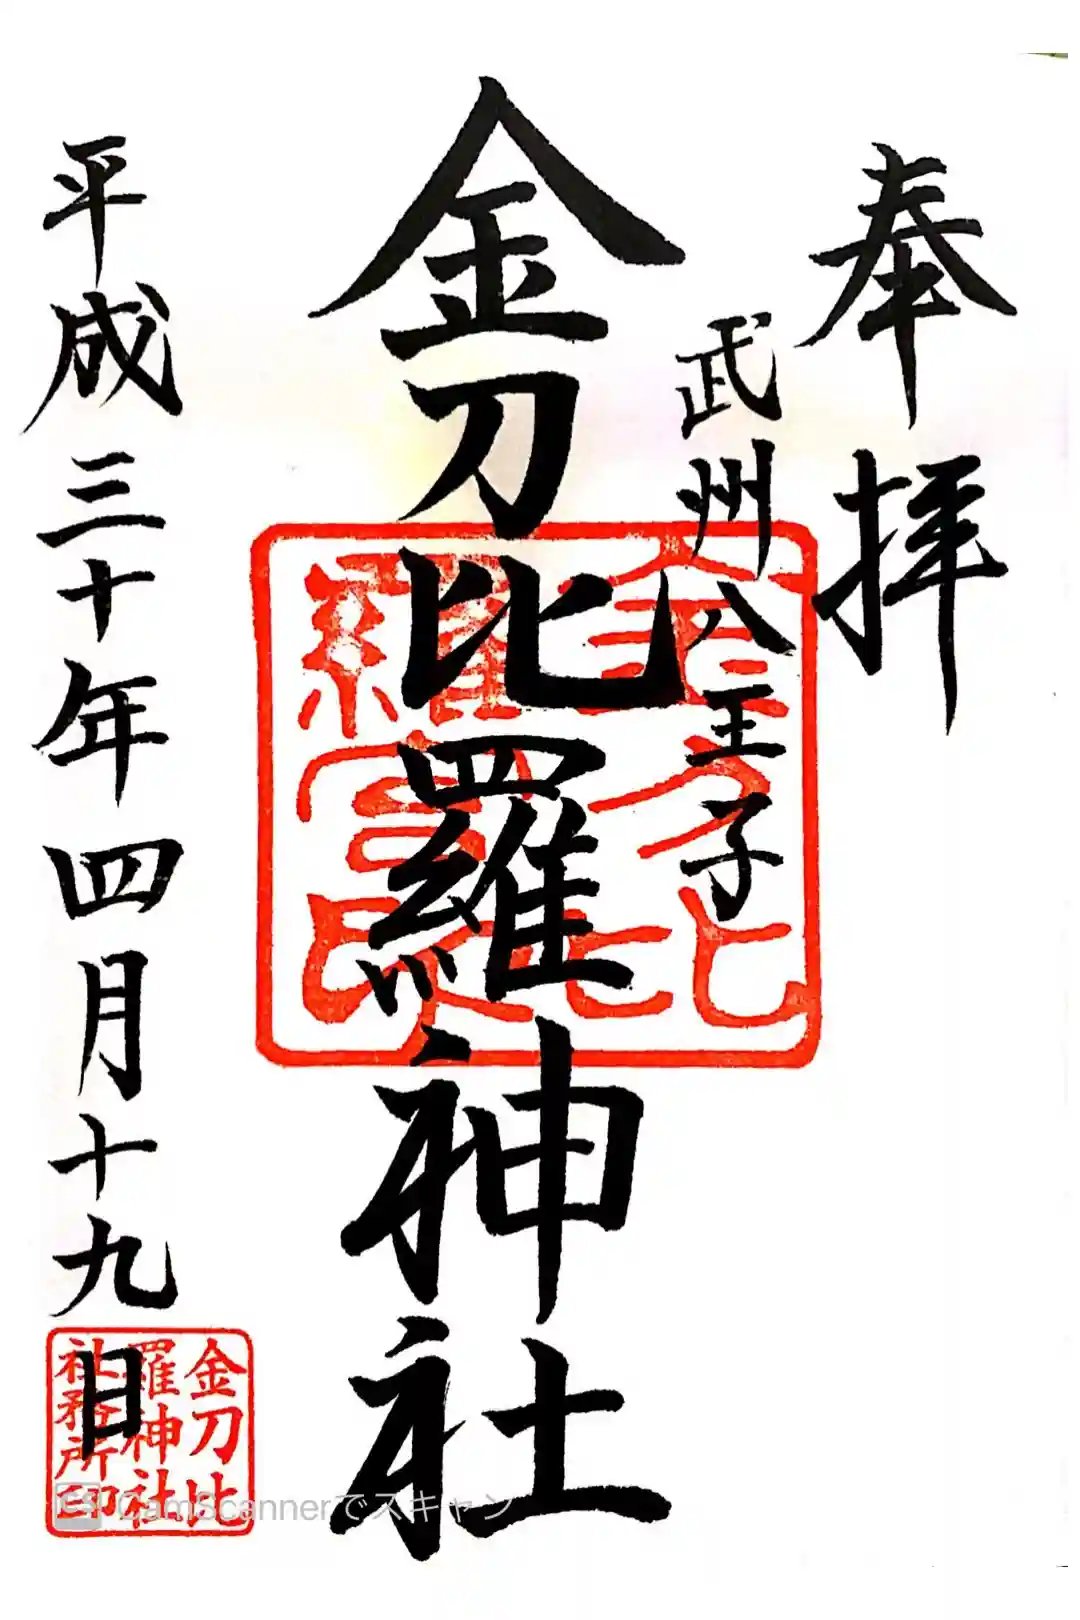 奉拝
武州八王子
金刀比羅神社
平成三十年四月十九日
金刀比
羅神社
社務所印
CS CamScannerでスキャン